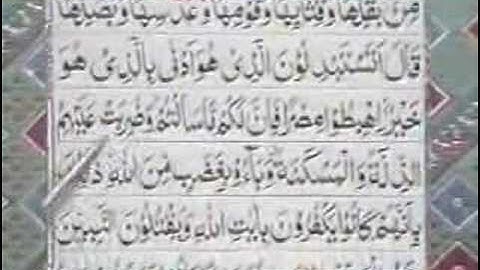 مِنْۢ بَقْلِهَا وَقِثَّآئِهَا وَفُوْمِهَا وَعَدَسِهَا وَبَصَلِهَا
قَالَ اَتَسْتَبْدِلُوْنَ الَّذِىْ هُوَ اَدْنٰى بِالَّذِىْ هُوَ
خَيْرٌ اِهْبِطُوْا مِصْرًا فَاِنَّ لَكُمْ مَّا سَاَلْتُمْ وَضُرِبَتْ عَلَيْهِمُ
الذِّلَّةُ وَالْمَسْكَنَةُ وَبَآءُوْ بِغَضَبٍ مِّنَ اللّٰهِ ذٰلِكَ
بِاَنَّهُمْ كَانُوْا يَكْفُرُوْنَ بِاٰيٰتِ اللّٰهِ وَيَقْتُلُوْنَ النَّبِيّٖنَ